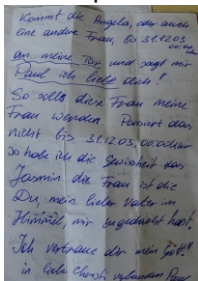 Kommt die Angela, oder auch
eine andere Frau, bis 31.12.03
00.00 Uhr
an meine Tür und sagt mir
Paul ich liebe dich"
So solls diese Frau meine
Frau werden. Passiert das
nicht bis 31.12.03, 00.00 Uhr
so habe ich die Gewissheit das
Jasmin die Frau ist die
Du, mein lieber Vater im
Himmel, mir zugedacht hast.
Ich vertraue dir mein Gott!!
in Liebe Christi verbunden Paul